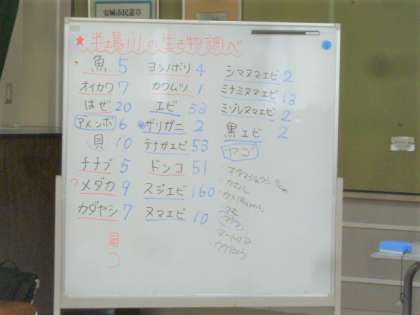 安城市民憲章
★半場川の生き物調べ
魚 5
オイカワ 7
はぜ 20
アメンボ 6
貝 10
チチブ 5
メダカ 9
カダヤシ 7
ヨシノボリ 4
カワムツ 1
エビ 33
ザリガニ 2
テナガエビ 53
ドンコ 51
スジエビ 160
ヌマエビ 10
シマヌマエビ 2
ミナミヌマエビ 13
ミゾレヌマエビ 2
黒エビ 2
ヤゴ